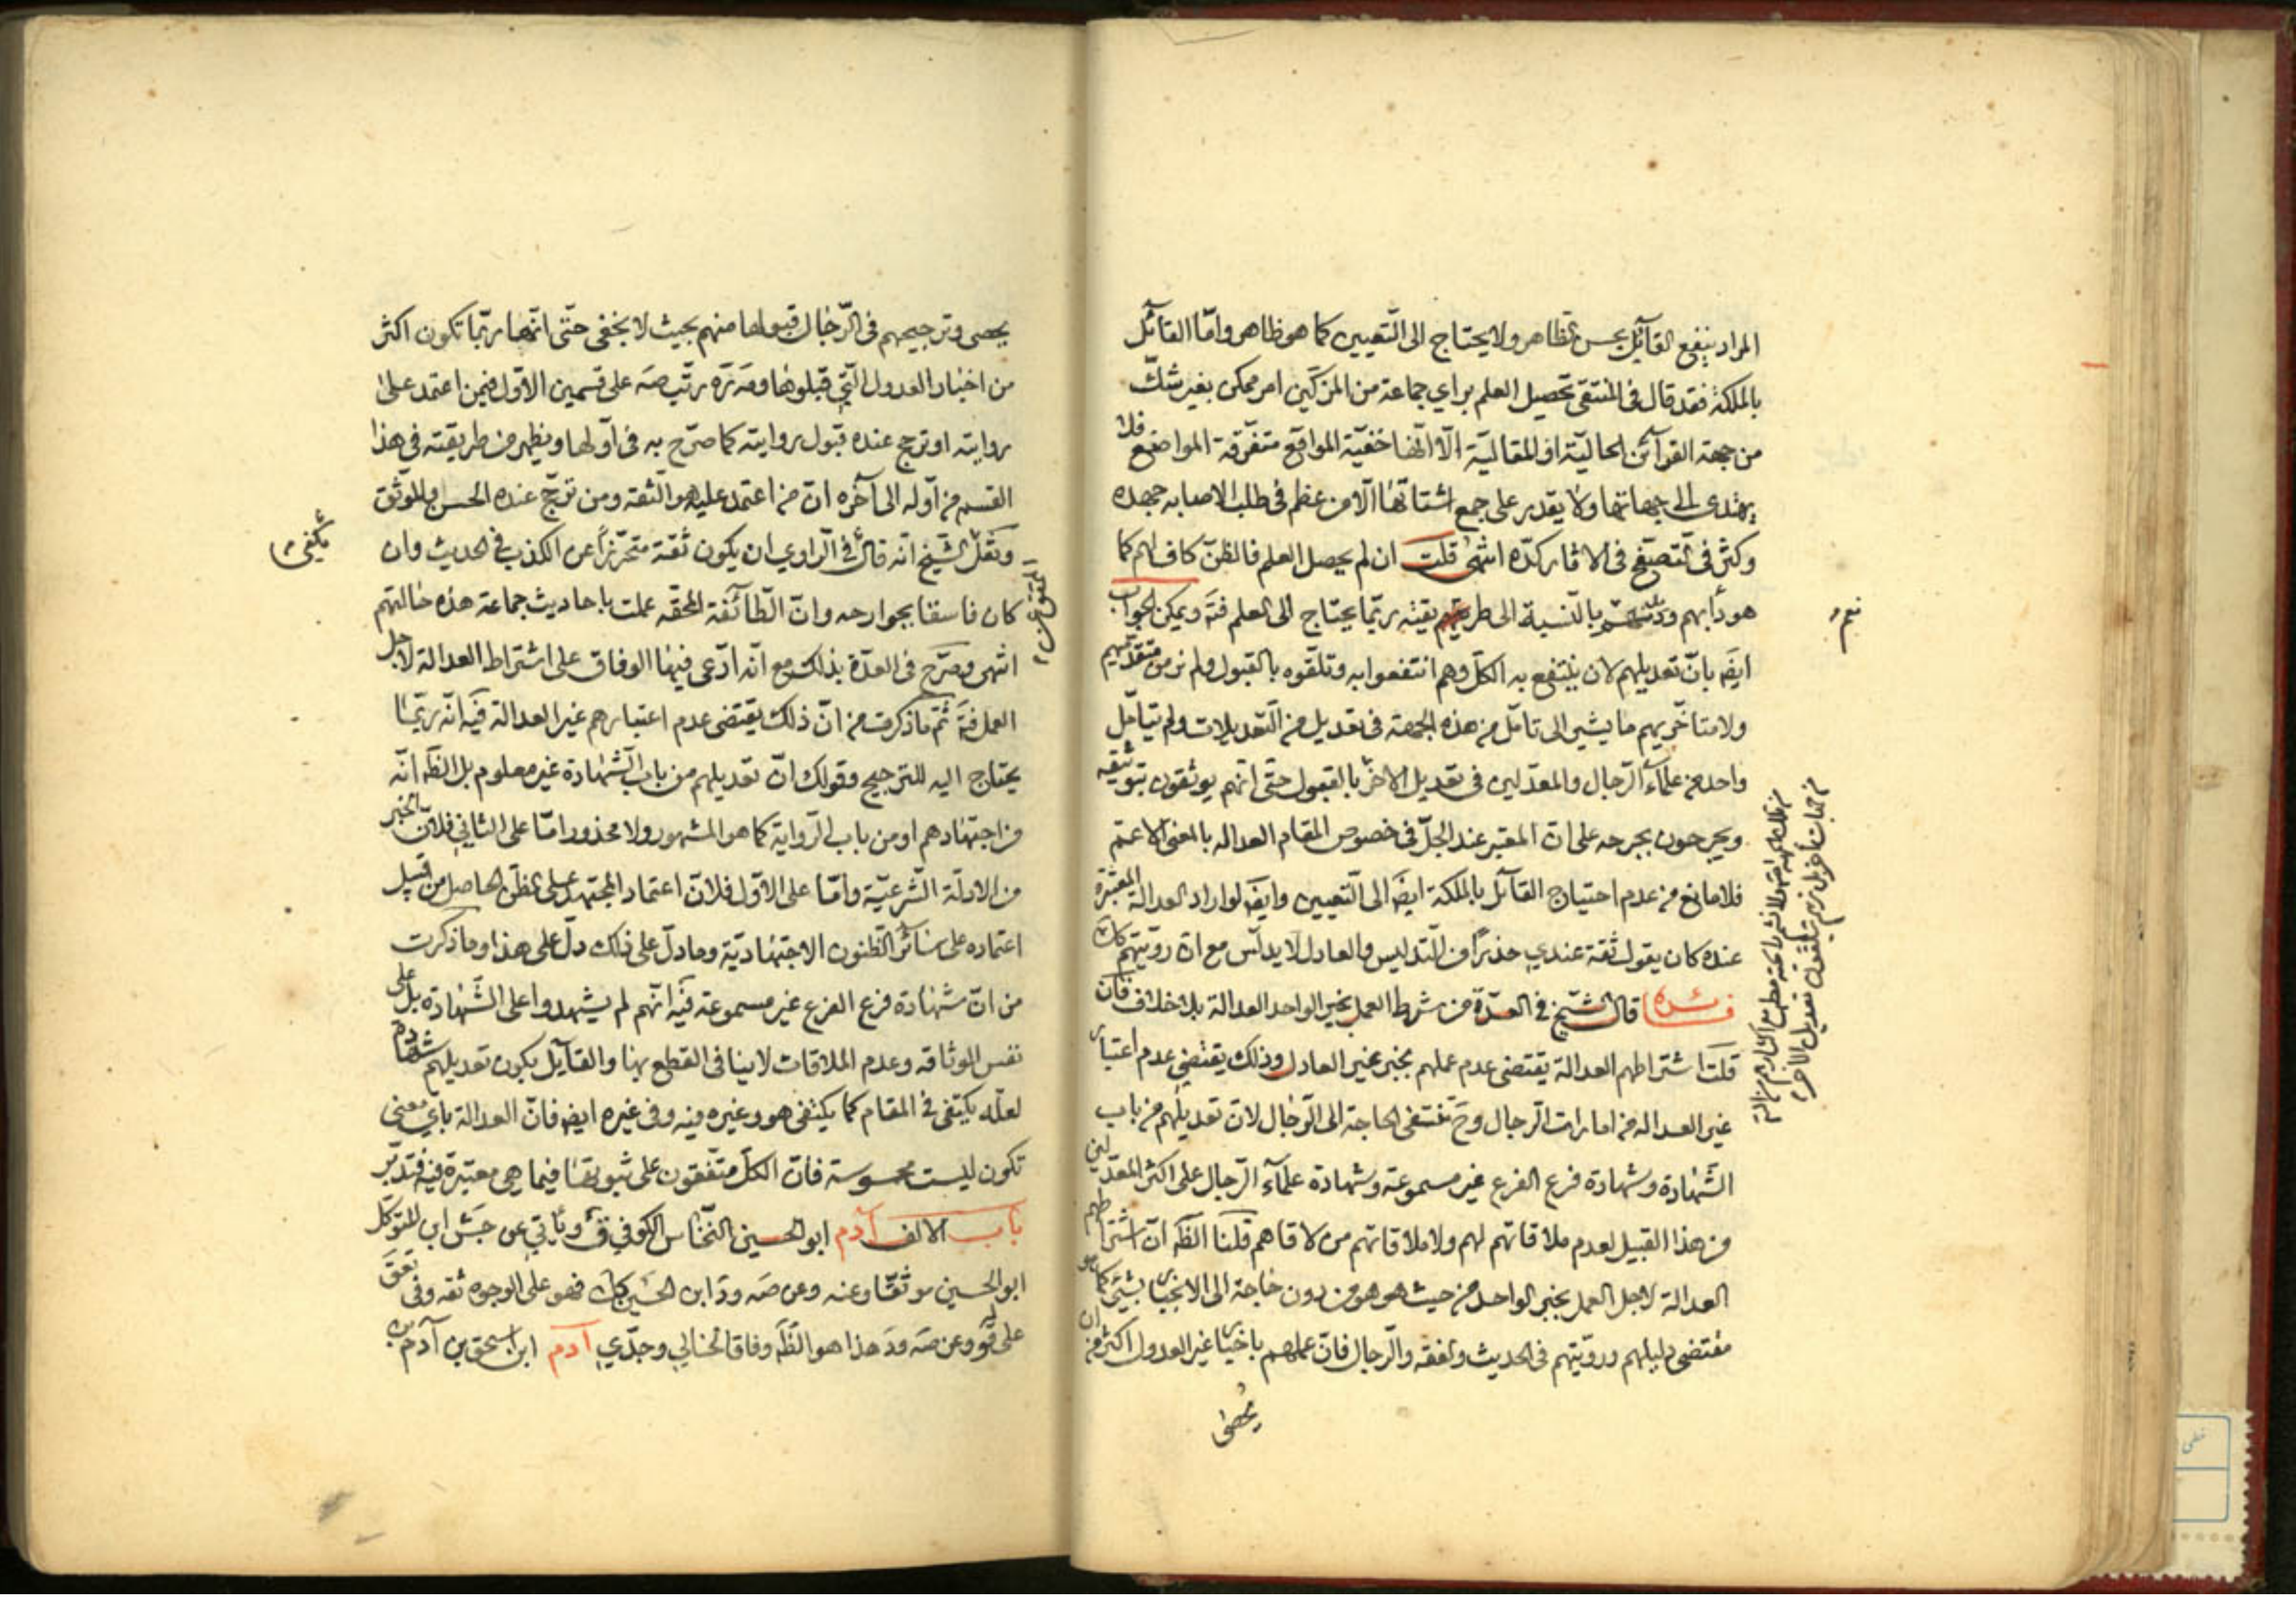 المراد ينفع القائل بحسن الظاهر ولا يحتاج الى التعيين كما هو ظاهر وامّا القائل
بالملكة فقد قال في المنتقى تحصيل العلم براي جماعة من المزكّين امر ممكن بغير شكّ
من جهة القرآئن الحاليّة او المقاليّة الّا انّها خفيّة المواقع متفرّقة المواضع فلا
يهتدي الى جهاتها ولا يقدر على جمع اشتاتها الّا من عظم في طلب الاصابه جهده
وكثر في التصفّح في الاثار كدّه انتهى قلت ان لم يحصل العلم فالظنّ كاف لهم كما
هو دأبهم بالنّسبة الى طريقته ربّما يحتاج الى العلم فتَه ويمكن الجواب
نعم
ايضَه بانّ تعديلهم لان ينتفع به الكلّ وهم انتفعوا به وتلقّوه بالقبول ولم نر من متقدّميهم
ولا متاخّريهم ما يشير الى تامّل من هذه الجهة في تعديل من التّعديلات ولم يتامّل
واحد من علمآء الرّجال والمعدّلين في تعديل الآخر بالقبول حتّى انّهم يوثّقون بتوثيقه
ويجرحون بجرحه على انّ المعتبر عند الجلّ في خصوص المقام العداله بالمعنى الاعمّ
فلا مانع من عدم احتياج القآئل بالملكة ايضَه الى التّعيين وايضَه لو اراد العدالة المعتبرة
عنده كان يقول ثقة عندي حذرًا من التّدليس والعادل لا يدلّس مع انّ رويّتهم كك
فائده قال الشّيخ في العدّة من شرط العمل بخبر الواحد العدالة بلا خلاف فان
قلت اشتراطهم العدالة يقتضي عدم عملهم بخبر غير العادل وذلك يقتضي عدم اعتبار
غير العداله من امارات الرّجال وحَ تنتفى الحاجة الى الرّجال لانّ تعديلهم من باب
الشّهادة وشهادة فرع الفرع غير مسموعة وشهادة علمآء الرّجال على اكثر المعدّلين
من هذا القبيل لعدم ملاقاتهم لهم ولا ملاقاتهم من لاقاهم قلنا الظَه انّ اشتراطهم
العدالة لاجل العمل بخبر الواحد من حيث هو هو من دون حاجة الى الانجبار بشيئ كما هو
مقتضى دليلهم ورويّتهم في الحديث والفقه والرّجال فانّ عملهم باخبار غير العدول اكثر من ان
يحصى
يحصى وترجيحهم في الرّجال قبولها منهم بحيث لا يخفى حتّى انّها ربّما تكون اكثر
من اخبار العدول الّتي قبلوها رتّب صَه على قسمين الاوّل فيمن اعتمد على
روايته او ترجح عنده قبول روايته كما صرّح به في اوّلها ويظهر من طريقته في هذا
القسم من اوّله الى آخره انّ من اعتمد عليه هو الثقه ومن ترجّح عنده الحسن والموثّق
ونقل الشيخ انّه قال في الرّاوي ان يكون ثقة متحرّزاً عن الكذب في الحديث وان
يكفي
كان فاسقا بجوارحه وانّ الطّآئفة المحقّه عملت باحاديث جماعة هذه حالتهم
انتهى وصرّح في العدّة بذلك مع انّه ادّعى فيها الوفاق على اشتراط العدالة لاجل
العمل فتَه ثمّ ما ذكرت من انّ ذلك يقتضي عدم اعتبارهم غير العدالة فيَه انّه ربّما
يحتاج اليه للترجيح وقولك انّ تعديلهم من باب الشّهادة غير معلوم بل الظَه انّه
من اجتهادهم او من باب الرّواية كما هو المشهور ولا محذور امّا على الثاني فلانّ الخبر
من الادلّة الشّرعيّة وامّا على الاوّل فلانّ اعتماد المجتهد على الظنّ الحاصل من قبيل
اعتماده على سائر الظّنون الاجتهاديّة وما دلّ على ذلك دلّ على هذا وما ذكرت
من انّ شهادة فرع الفرع غير مسموعة فيَه انّهم لم يشهدوا على الشّهادة بل على
نفس الوثاقه وعدم الملاقات لا ينافي القطع بها والقآئل بكون تعديلهم شهادة
لعلّه يكتفى في المقام كما يكتفى هو وغيره فيه وفي غيره ايض فانّ العدالة باي معنى
تكون ليست محسوسة فانّ الكلّ متّفقون على ثبوتها فيما هي معتبرة فيه فتدبّر
باب الالف آدم ابو الحسين النّخّاس الكوفي قَ وياتي عن جَش ابن المتوكّل
ابو الحسين موثّقا وعنه وعن صَه ودَ ابن الحسين كك فهو على الوجوه ثقه وفي تعق
على قَوو وعن صَه ودَ هذا هو الظَه وفاقا لخالي وجدّي آدم ابن اسحق بن آدم بن